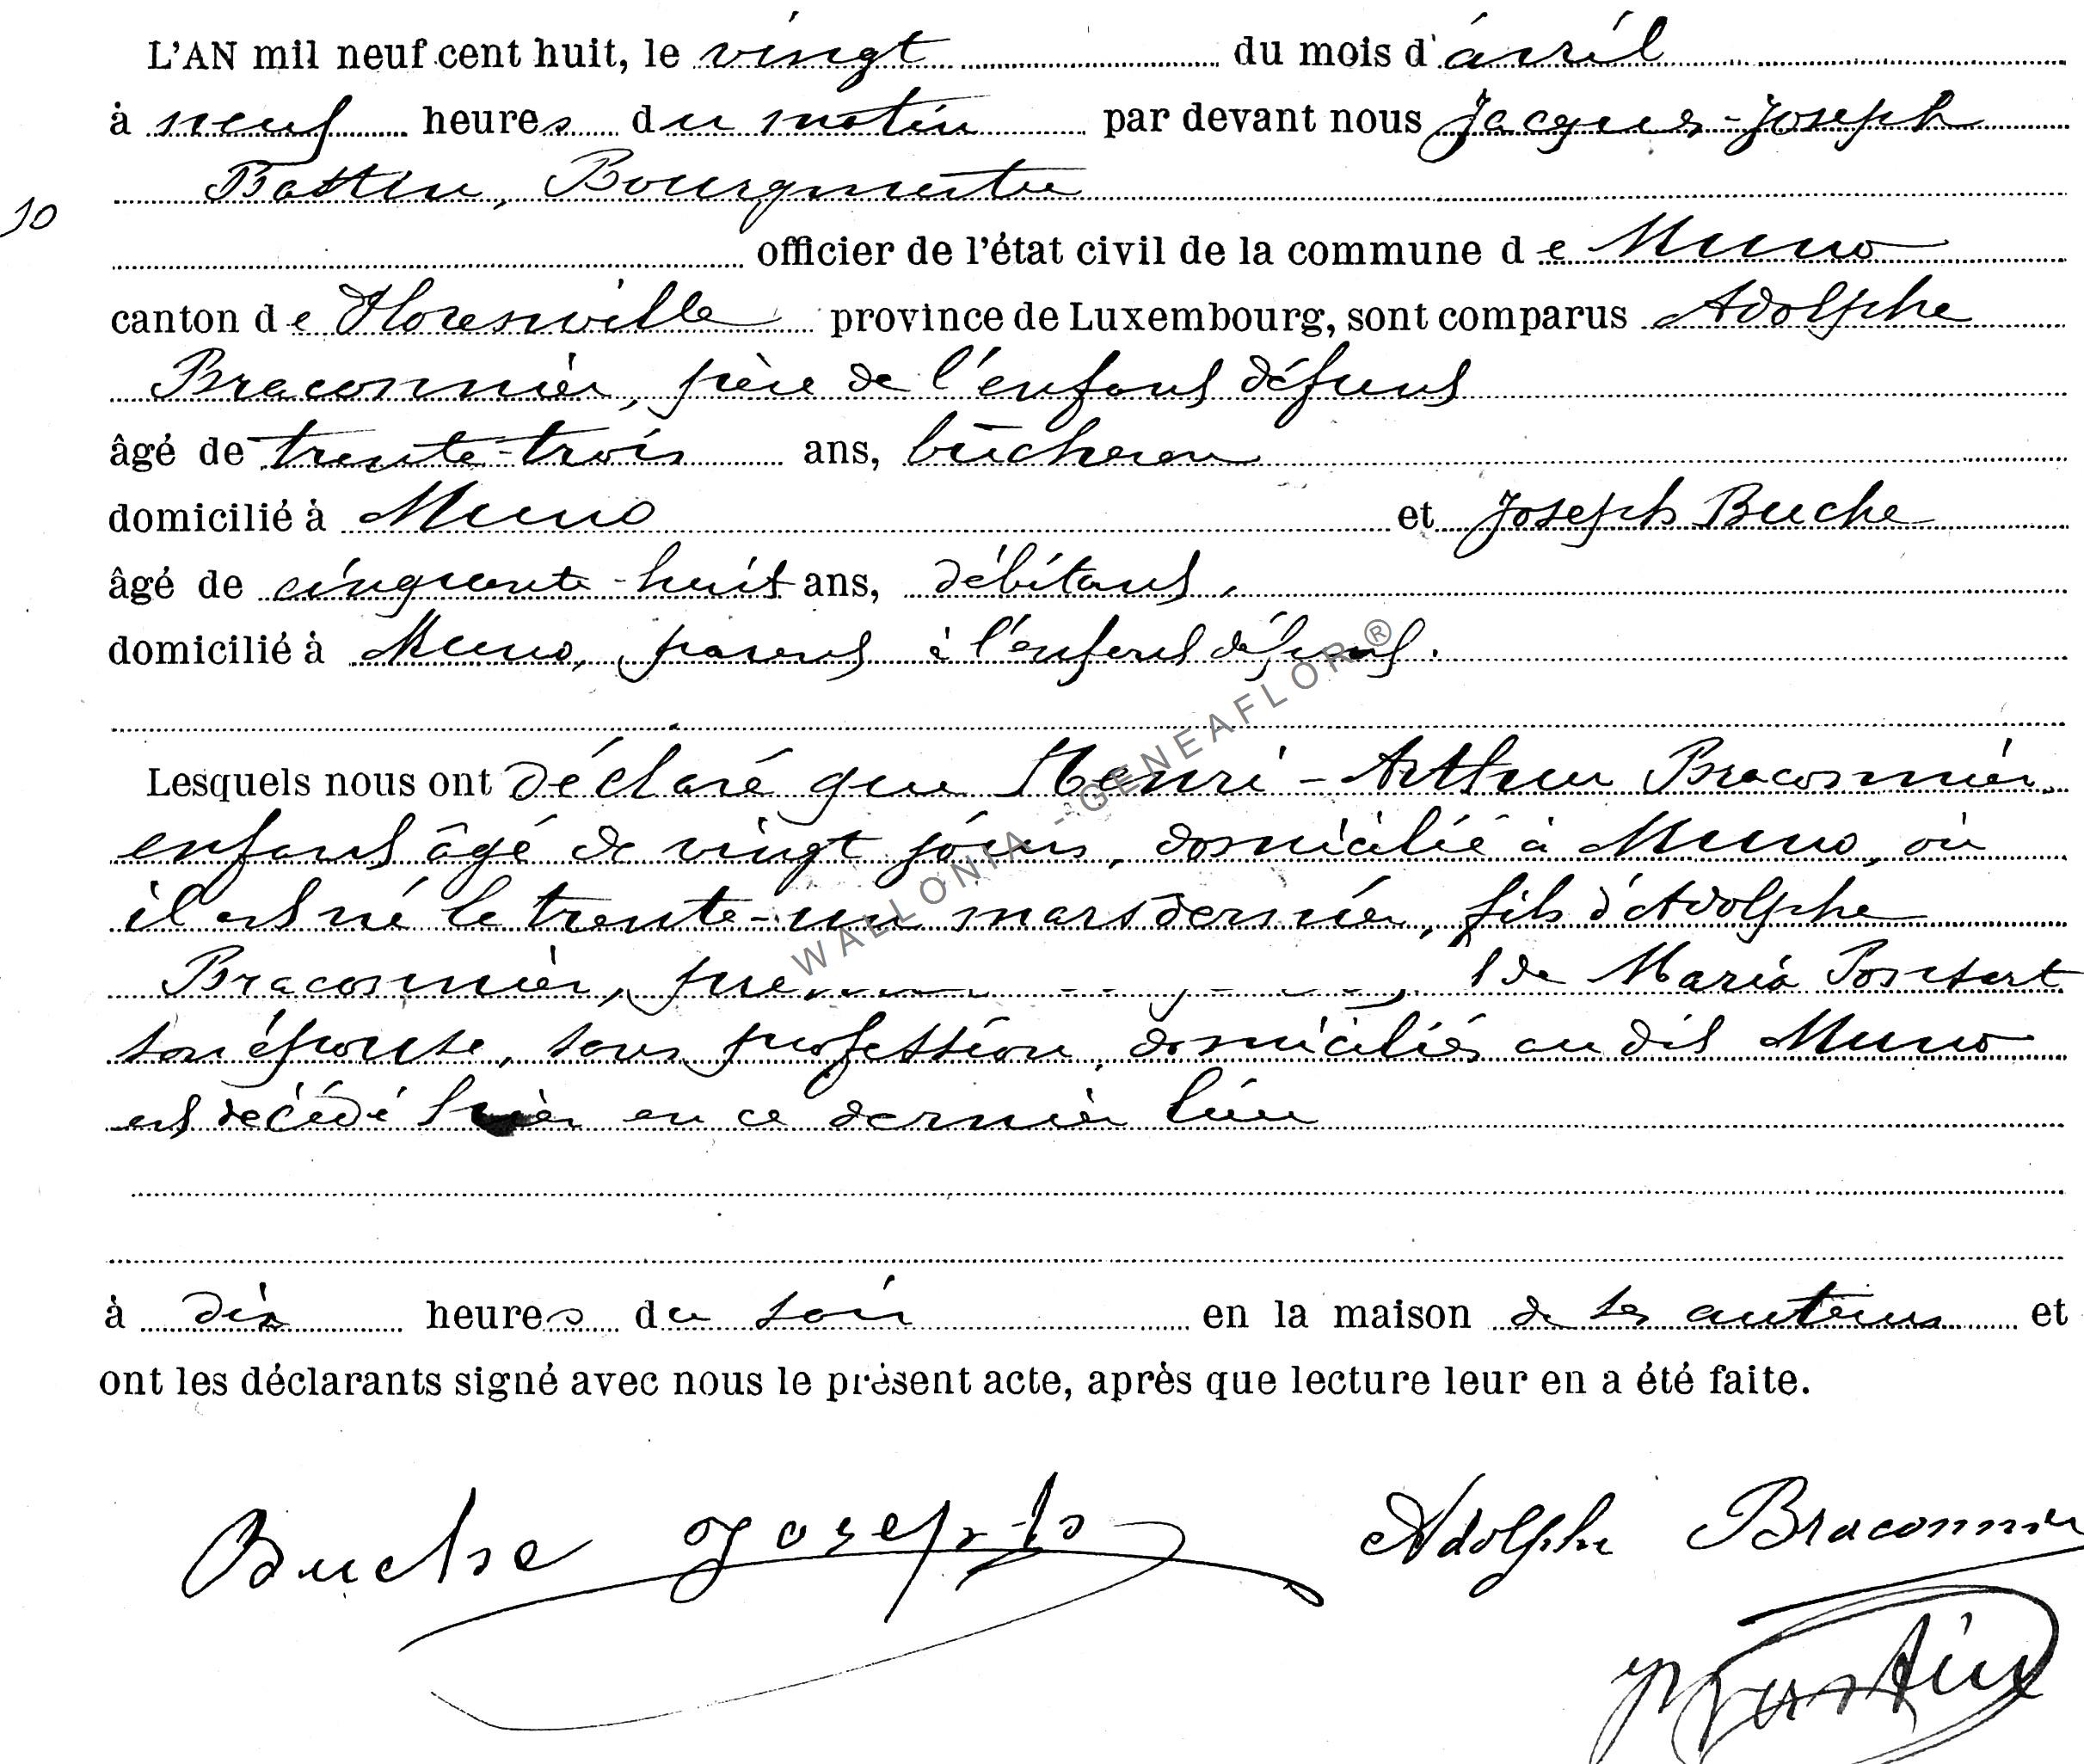 L'AN mil neuf cent huit, le vingt du mois d'avril
à neuf heures du matin par devant nous Jacques-Joseph
Battin, Bourgmestre
10
officier de l'état civil de la commune de Muno
canton de Florenville province de Luxembourg, sont comparus Adolphe
Braconnier, père de l'enfant défunt
âgé de trente-trois ans, bûcheron
domicilié à Muno et Joseph Buche
âgé de cinquante-huit ans, débitant,
domicilié à Muno, parent à l'enfant défunt.
Lesquels nous ont déclaré que Henri-Arthur Braconnier,
enfant âgé de vingt jours, domicilié à Muno, où
il est né le trente-un mars dernier, fils d'Adolphe
Braconnier, de Maria Ponsart
son épouse, sans profession, domiciliés au dit Muno
est décédé hier en ce dernier lieu
à dix heures du soir en la maison de ses auteurs et
ont les déclarants signé avec nous le présent acte, après que lecture leur en a été faite.
Buche Joseph Adolphe Braconnier
Battin
WALLONIA - GENEAFLOR ®